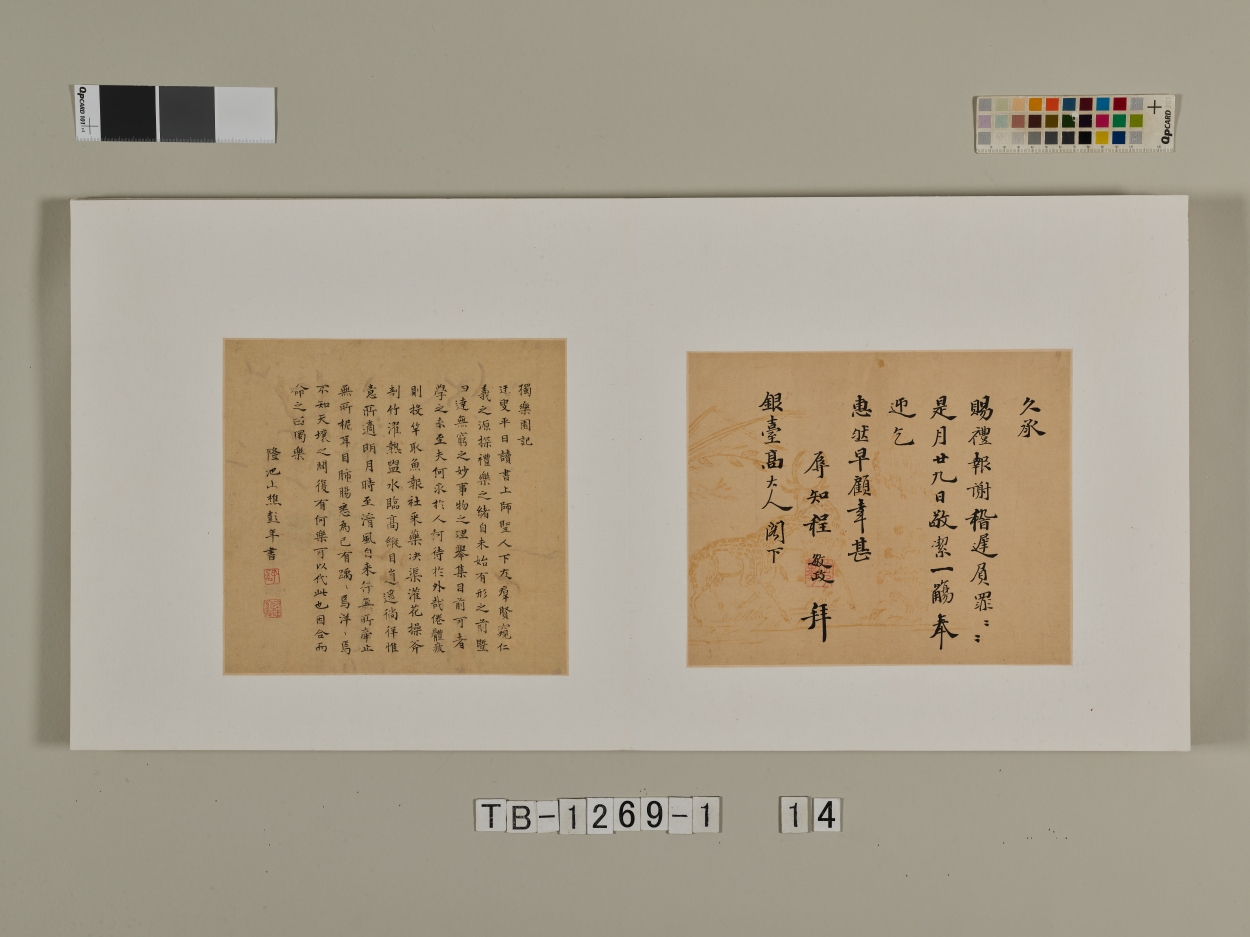 久承
賜禮報謝稽遲負罪〻〻
是月廿九日敬潔一觴奉
迎乞
惠然早顧幸甚
辱知程敏政拜
銀臺高大人閣下
獨樂園記
迂叟平日讀書上師聖人下友群賢窺仁
義之源探禮樂之緒自未始有形之前暨
四達無窮之妙事物之理舉集目前可者
學之未至夫何求於人何待於外哉倦體疲
則投竿取魚報社采藥决渠灌花操斧
剖竹濯熱盥水臨高縱目逍遙徜徉惟
意所適明月時至清風自来行無所牽止
無所柅耳目肺腸悉為己有踽〻焉洋〻焉
不知天壤之間復有何樂可以代此也因合而
命之曰獨樂
隆池山樵彭年書
QpCARD 101
QpCARD
TB-1269-1 14